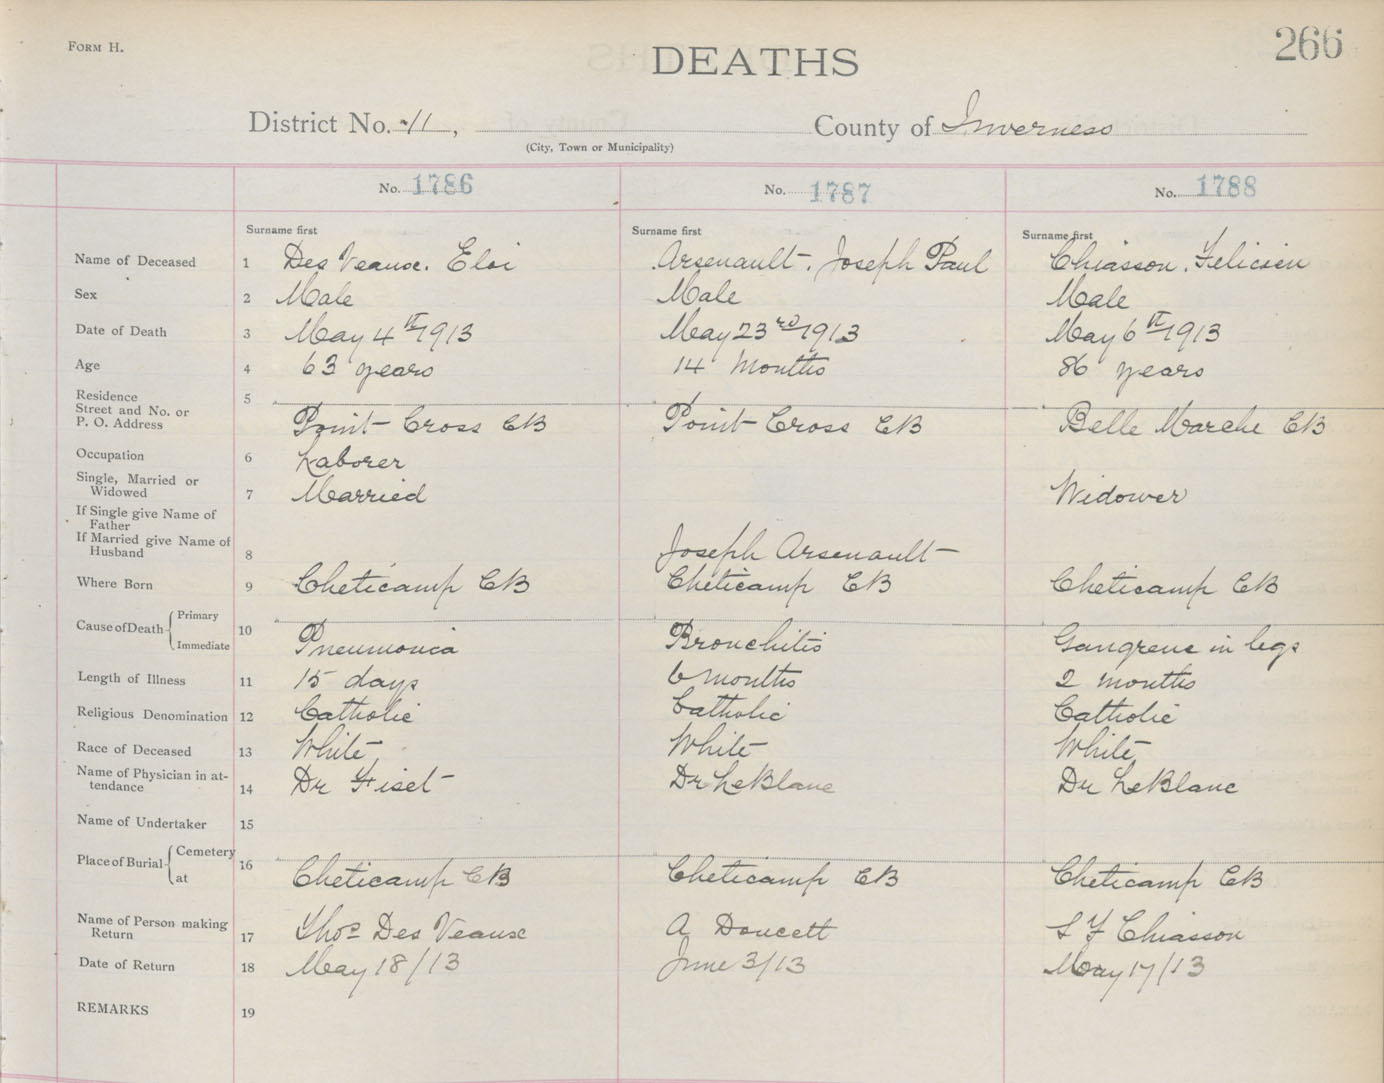 FORM H.
266
DEATHS
District No. 11, County of Inverness
(City, Town or Municipality)
No. 1786 No. 1787 No. 1788
Surname first Surname first Surname first
Name of Deceased 1 Des Veaux. Eloi Arsenault, Joseph Paul Chiasson, Felicien
Sex 2 Male Male Male
Date of Death 3 May 4th 1913 May 23rd 1913 May 6th 1913
Age 4 63 years 14 Months 86 years
Residence 5
Street and No. or
P. O. Address Point Cross CB Point Cross CB Belle Marche CB
Occupation 6 Laborer
Single, Married or
Widowed 7 Married Widower
If Single give Name of
Father
If Married give Name of
Husband 8 Joseph Arsenault
Where Born 9 Cheticamp CB Cheticamp CB Cheticamp CB
Cause of Death { Primary 10
Immediate Pneumonia Bronchitis Gangrene in legs
Length of Illness 11 15 days 6 months 2 months
Religious Denomination 12 Catholic Catholic Catholic
Race of Deceased 13 White White White
Name of Physician in at-
tendance 14 Dr Fiset Dr LeBlanc Dr LeBlanc
Name of Undertaker 15
Place of Burial { Cemetery 16
at Cheticamp CB Cheticamp CB Cheticamp CB
Name of Person making
Return 17 Thos Des Veaux A Doucett S F Chiasson
Date of Return 18 May 18/13 June 3/13 May 17/13
REMARKS 19